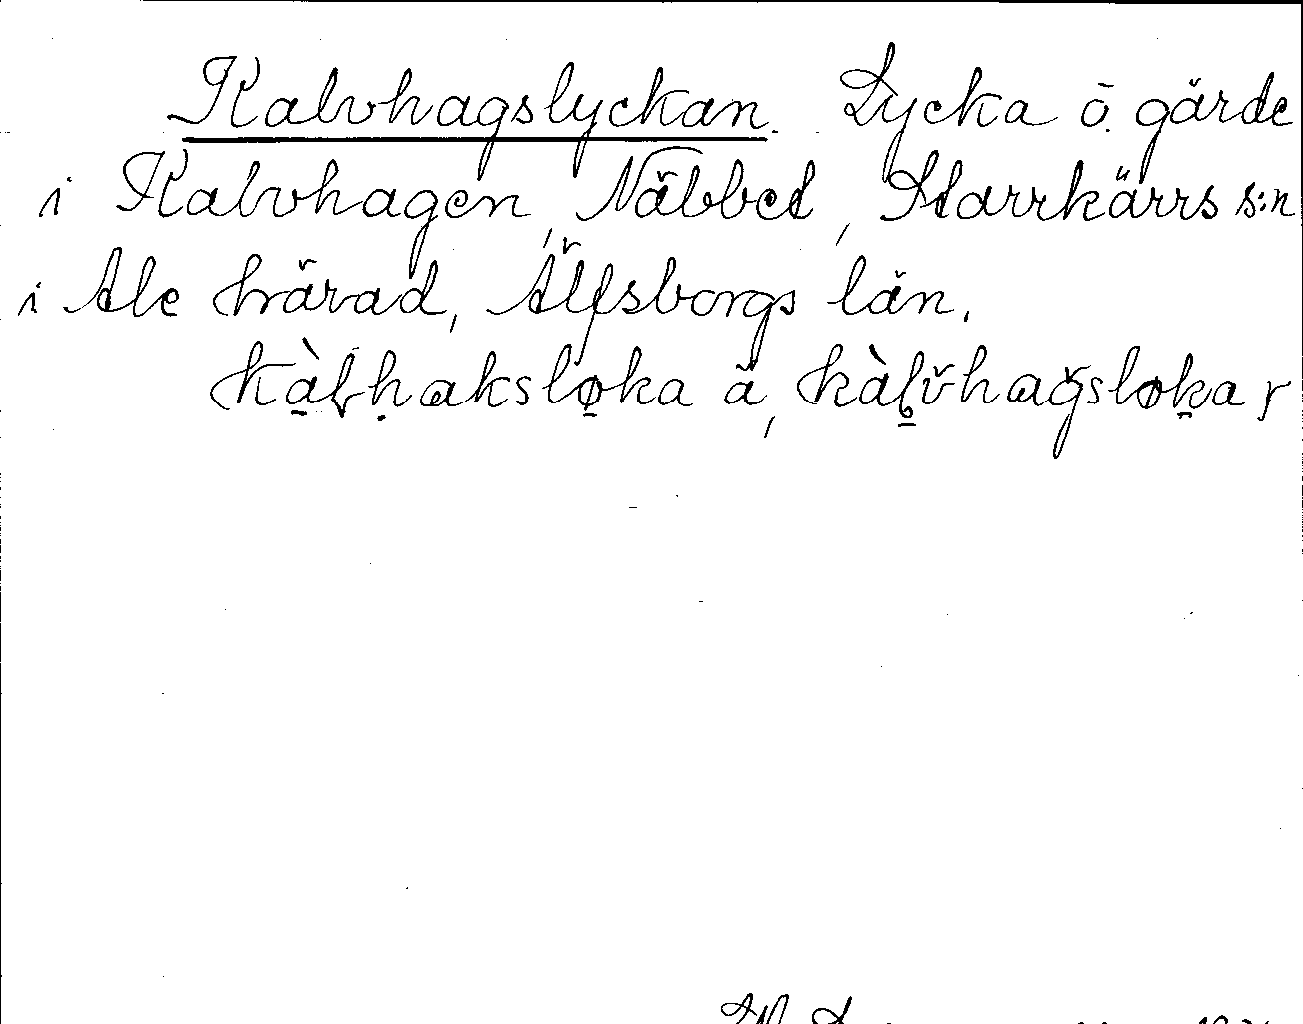 Kalvhagslyckan. Lycka o. gärde
i Kalvhagen, Näbbet, Starrkärrs s:n
i Ale härad, Älfsborgs län.
kàlhaksløka ä, kàlvhagsløkaṛ